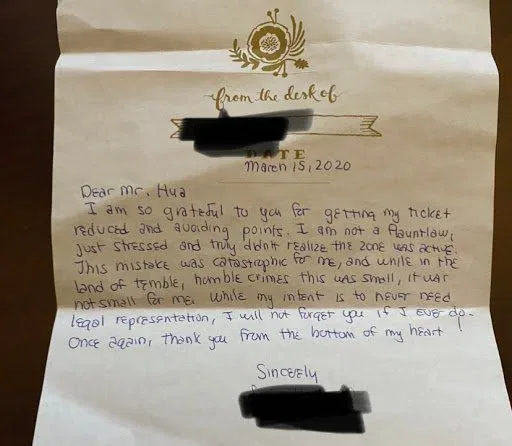 from the desk of
DATE
March 15, 2020
Dear Mr. Hua
I am so grateful to you for getting my ticket
reduced and avoiding points. I am not a flauntlaw,
just stressed and truly didn't realize the zone was active.
This mistake was catastrophic for me, and while in the
land of terrible, horrible crimes this was small, it was
not small for me. While my intent is to never need
legal representation, I will not forget you if I ever do.
Once again, thank you from the bottom of my heart
Sincerely